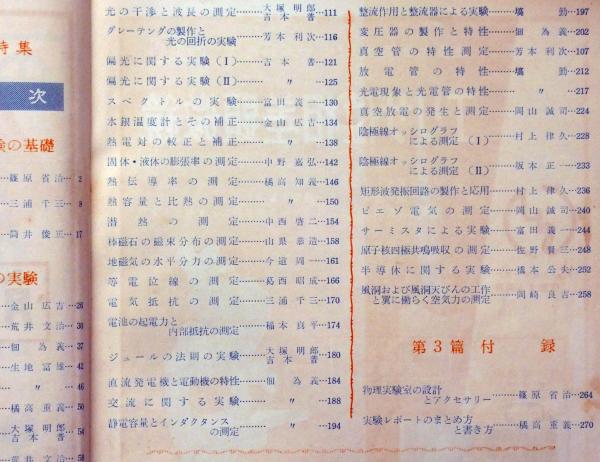 特集
次
験の基礎
篠原省治… 2
三浦千三… 9
筒井俊正…17
の実験
金山広吉…26
荒井文治…30
佃為義…37
生地富雄…42
〃…46
橘高重義…50
大塚明郎
吉本普…54
荒井文治…58
光の干渉と波長の測定……大塚明郎
吉本普…111
グレーティングの製作と
光の回折の実験……芳本利次…116
偏光に関する実験(Ⅰ)……吉本普…121
偏光に関する実験(Ⅱ)……〃…125
スペクトルの実験……富田義一…130
水銀温度計とその補正……金山広吉…134
熱電対の較正と補正……〃…138
固体・液体の膨張率の測定……中野嘉弘…142
熱伝導率の測定……橘高知義…146
熱容量と比熱の測定……〃…150
潜熱の測定……中西啓二…154
棒磁石の磁束分布の測定……山県恭造…158
地磁気の水平分力の測定……今道周一…161
等電位線の測定……葛西昭成…166
電気抵抗の測定……三浦千三…170
電池の起電力と
内部抵抗の測定……稲本直平…174
ジュールの法則の実験……大塚明郎
吉本普…180
直流発電機と電動機の特性……佃為義…184
交流に関する実験……〃…188
静電容量とインダクタンス
の測定……〃…194
整流作用と整流器による実験……塙勤…197
変圧器の製作と特性……佃為義…202
真空管の特性測定……芳本利次…107
放電管の特性……塙勤…212
光電現象と光電管の特性……〃…217
真空放電の発生と測定……岡山誠司…224
陰極線オッシログラフ
による測定(Ⅰ)……村上律久…228
陰極線オッシログラフ
による測定(Ⅱ)……坂本正一…233
矩形波発振回路の製作と応用……村上律久…236
ピエゾ電気の測定……岡山誠司…240
サーミスタによる実験……富田義一…244
原子核四極共鳴吸収の測定……佐野賢三…248
半導体に関する実験……橋本公夫…252
風洞および風洞天びんの工作
と翼に働らく空気力の測定……岡崎良吉…258
第3篇付録
物理実験室の設計
とアクセサリー……篠原省治…264
実験レポートのまとめ方
と書き方……橘高重義…270